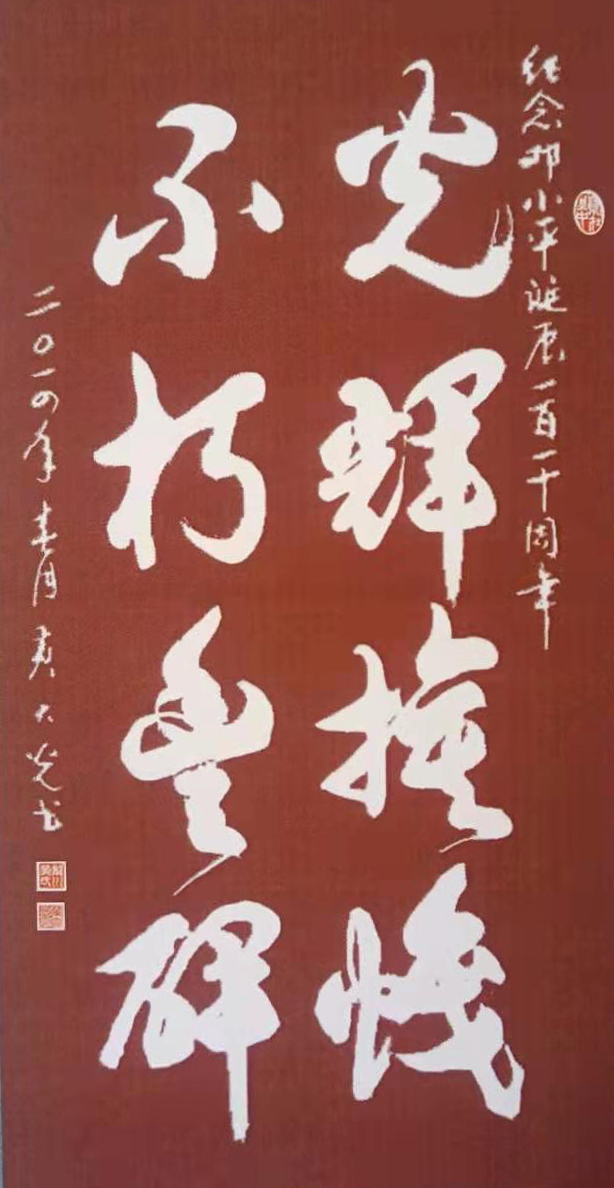 纪念邓小平诞辰一百一十周年
光輝旗幟
不朽豐碑
二〇一四年春月 大光书